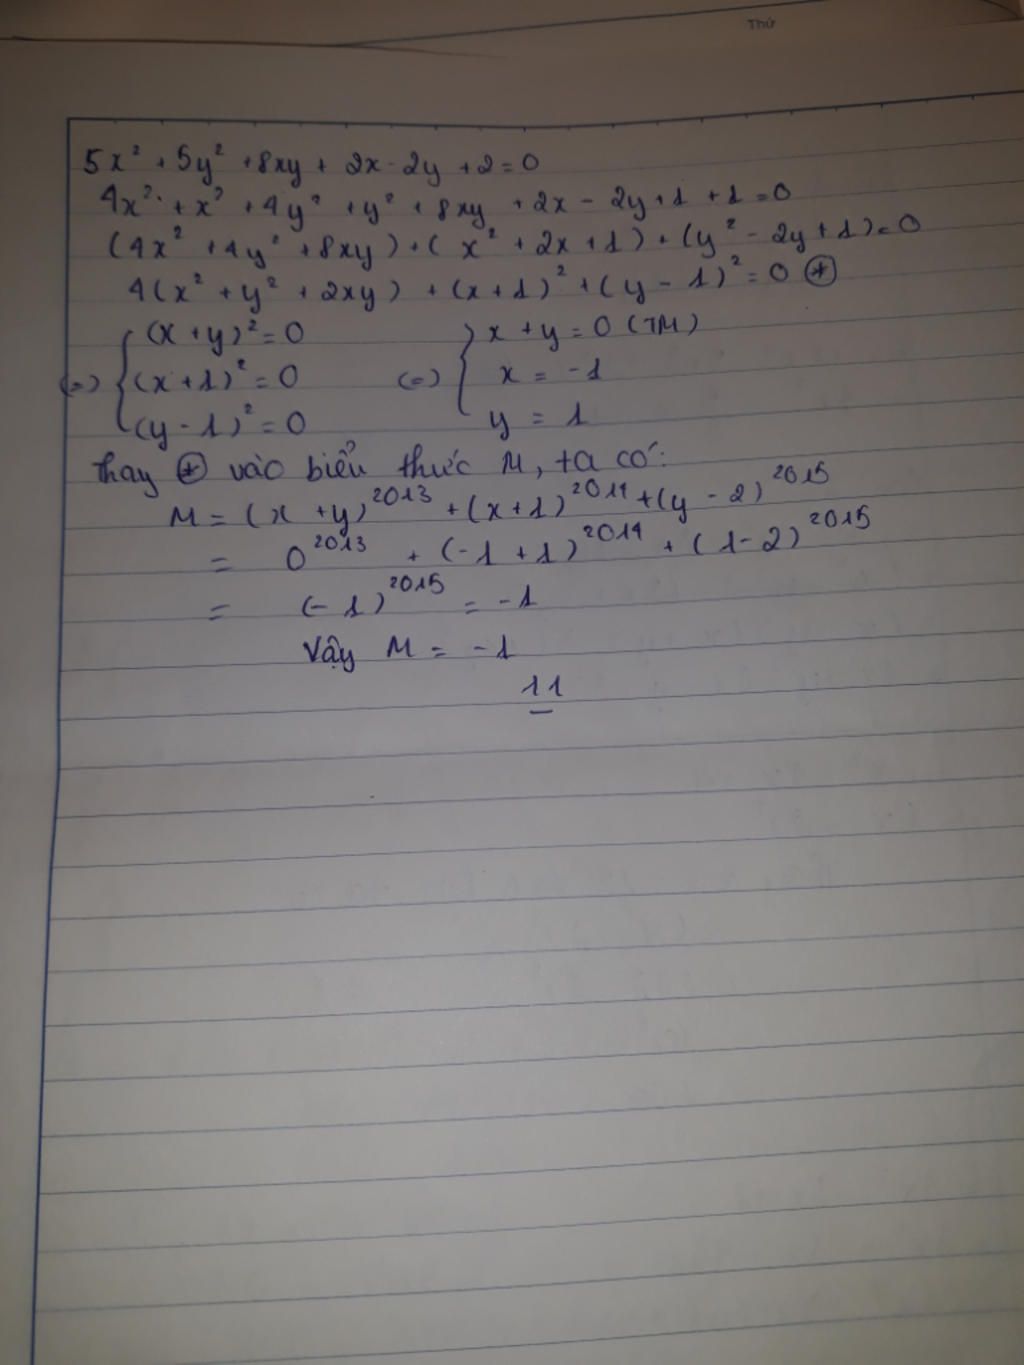 Thứ
5x² + 5y² + 8xy + 2x - 2y + 2 = 0
4x² + x² + 4y² + y² + 8xy + 2x - 2y + 1 + 1 = 0
(4x² + 4y² + 8xy) + (x² + 2x + 1) + (y² - 2y + 1) = 0
4(x² + y² + 2xy) + (x + 1)² + (y - 1)² = 0 ⊕
(x + y)² = 0 x + y = 0 (TM)
(=) { (x + 1)² = 0 (=) { x = -1
(y - 1)² = 0 y = 1
Thay ⊕ vào biểu thức M, ta có:
M = (x + y)²⁰¹³ + (x + 1)²⁰¹⁴ + (y - 2)²⁰¹⁵
= 0²⁰¹³ + (-1 + 1)²⁰¹⁴ + (1 - 2)²⁰¹⁵
= (-1)²⁰¹⁵ = -1
Vậy M = -1
11